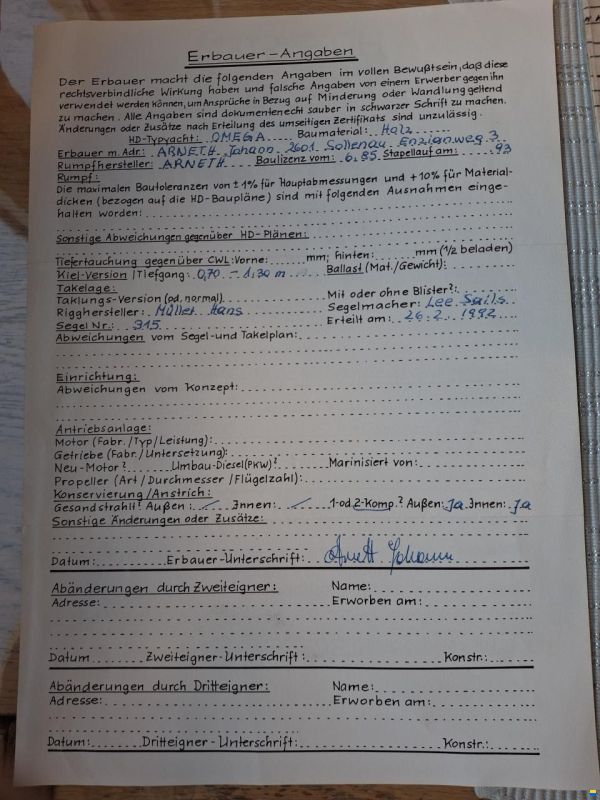 Erbauer-Angaben
Der Erbauer macht die folgenden Angaben im vollen Bewußtsein, daß diese
rechtsverbindliche Wirkung haben und falsche Angaben von einem Erwerber gegen ihn
verwendet werden können, um Ansprüche in Bezug auf Minderung oder Wandlung geltend
zu machen. Alle Angaben sind dokumentenecht sauber in schwarzer Schrift zu machen.
Änderungen oder Zusätze nach Erteilung des umseitigen Zertifikats sind unzulässig.
HD-Typyacht: OMEGA Baumaterial: Holz
Erbauer m. Adr.: ARNETH Johann 2601 Sollenau Enzianweg 3
Rumpfhersteller: ARNETH Baulizenz vom: 6.85 Stapellauf am: 93
Rumpf:
Die maximalen Bautoleranzen von ±1% für Hauptabmessungen und +10% für Material-
dicken (bezogen auf die HD-Baupläne) sind mit folgenden Ausnahmen einge-
halten worden:
Sonstige Abweichungen gegenüber HD-Plänen:
Tiefertauchung gegenüber CWL: Vorne: mm; hinten: mm (1/2 beladen)
Kiel-Version / Tiefgang: 0,70 - 1,30 m Ballast (Mat./Gewicht):
Takelage:
Taklungs-Version (od. normal) Mit oder ohne Blister?:
Rigghersteller: Müller Hans Segelmacher: Lee Sails
Segel Nr.: 315 Erteilt am: 26.2. 1992
Abweichungen vom Segel-und Takelplan:
Einrichtung:
Abweichungen vom Konzept:
Antriebsanlage:
Motor (Fabr./Typ/Leistung):
Getriebe (Fabr./Untersetzung):
Neu-Motor? Umbau-Diesel (PKW)? Marinisiert von:
Propeller (Art / Durchmesser / Flügelzahl):
Konservierung/Anstrich:
Gesandstrahlt? Außen: Innen: 1-od. 2-Komp.? Außen: Ja Innen: Ja
Sonstige Änderungen oder Zusätze:
Datum: Erbauer-Unterschrift: Arneth Johann
Abänderungen durch Zweiteigner: Name:
Adresse: Erworben am:
Datum Zweiteigner-Unterschrift: Konstr.:
Abänderungen durch Dritteigner: Name:
Adresse: Erworben am:
Datum: Dritteigner-Unterschrift: Konstr.: